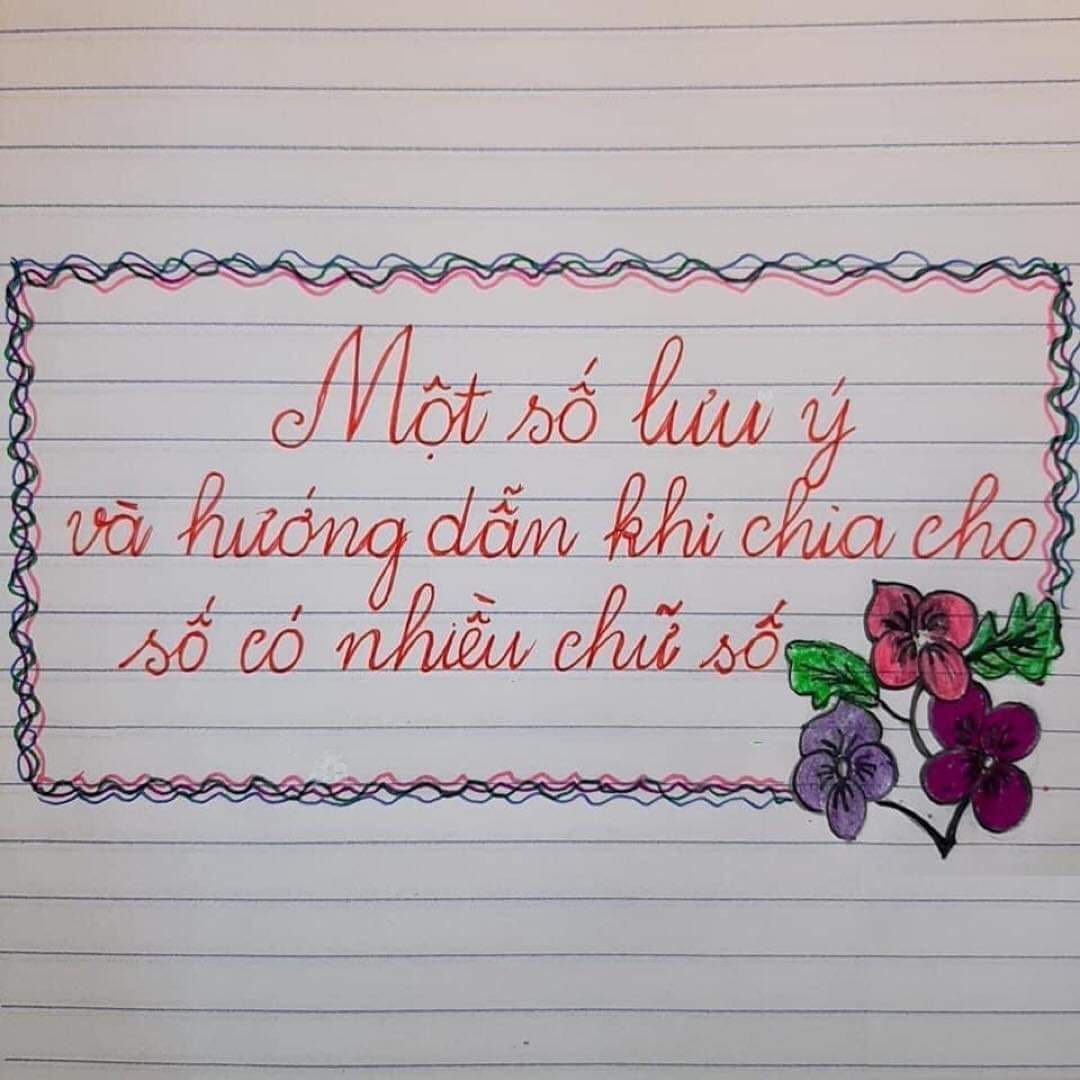 Một số lưu ý
và hướng dẫn khi chia cho
số có nhiều chữ số